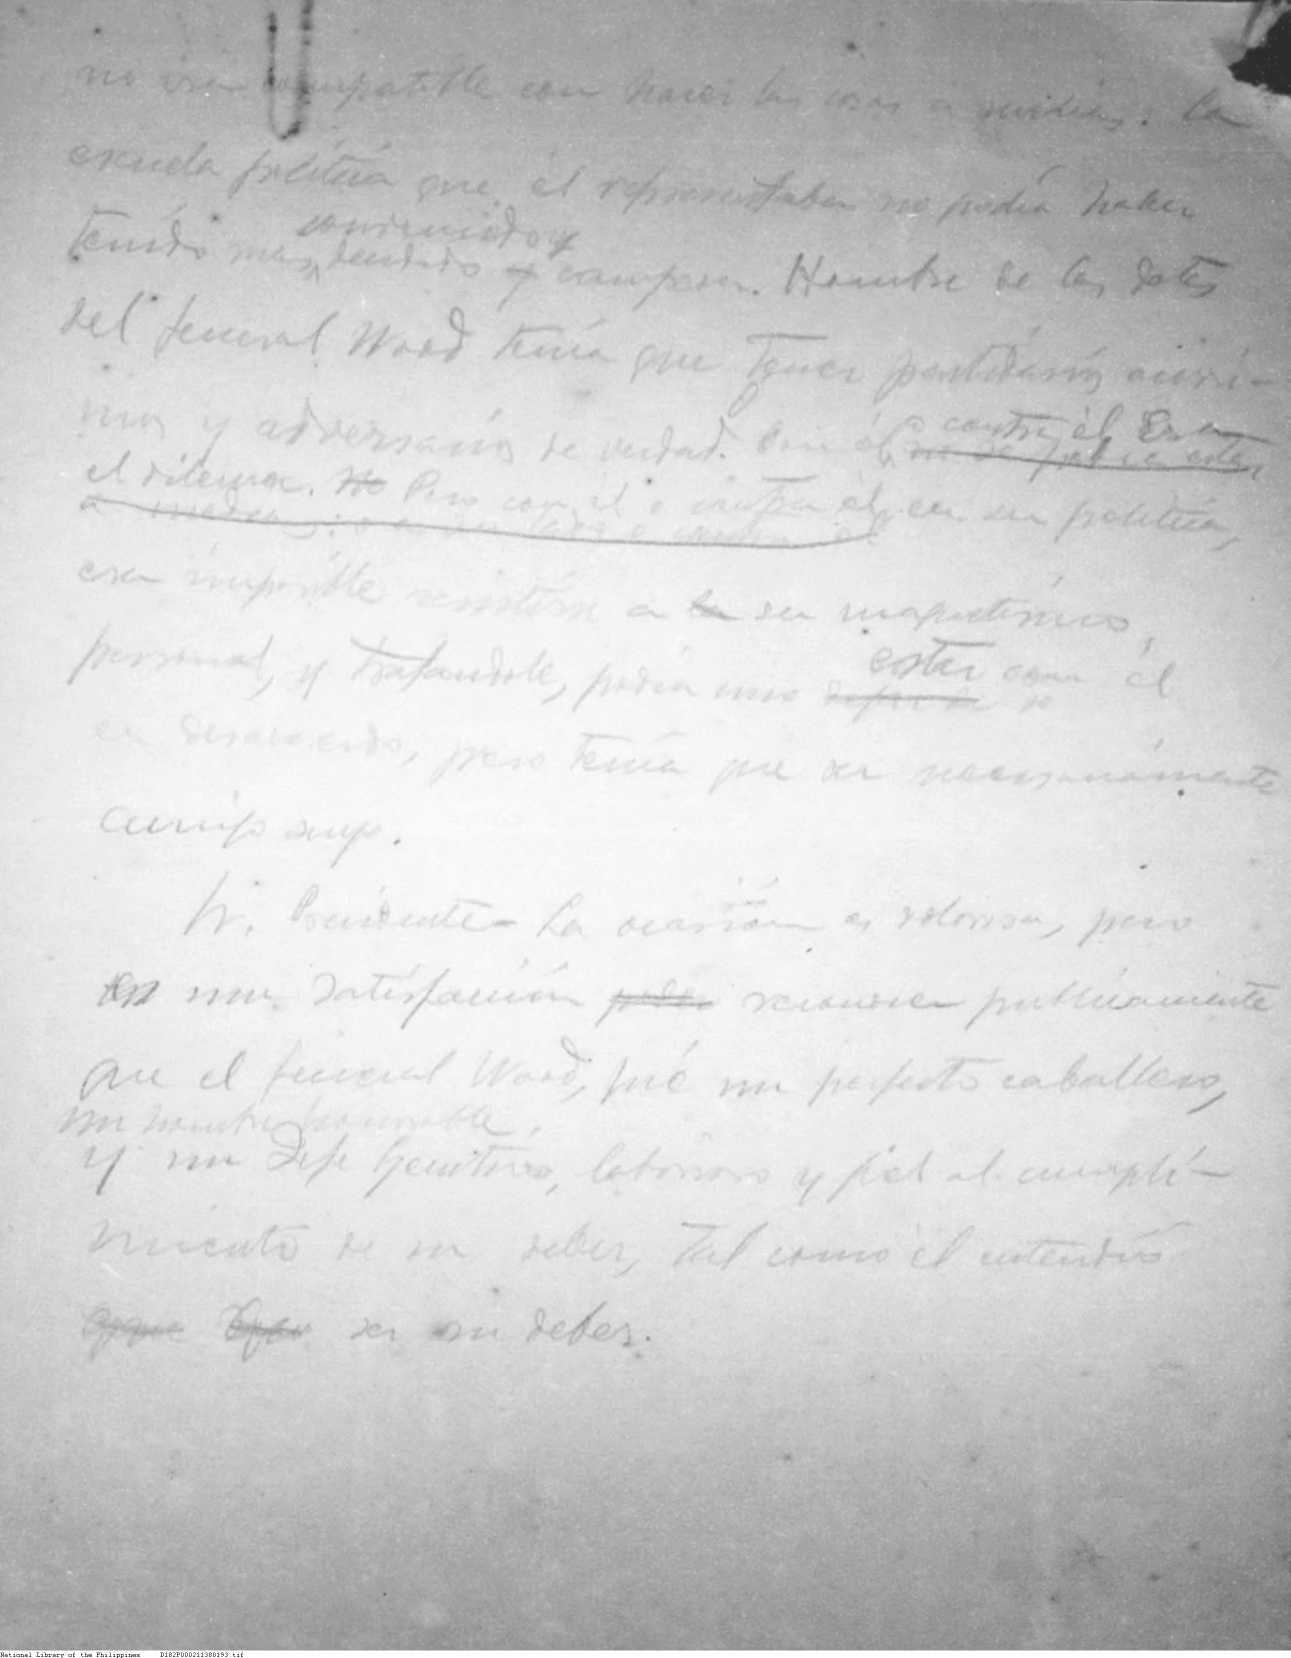 no era compatible con hacer las cosas a medias. La
escuela política que él representaba no podía haber
convencido y
tenido mas, denodado y campeon. Hombre de las dotes
del General Wood tenía que tener partidarios acérri-
mos y adversarios de verdad. Con él o contra él. Era
el dilema. No Pero con él o contra él, en su política,
era imposible resistirse a la su magnetismo
personal, y tratandole, podía uno estar con él
en desacuerdo, pero tenía que ser necesariamente
amigo suyo.
Sr. Presidente - La ocasión es dolorosa, pero
es una satisfacción poder reconocer públicamente
que el General Wood, fué un perfecto caballero,
un hombre honorable,
y un Jefe Ejecutivo, laborioso y fiel al cumpli-
miento de su deber, tal como él entendió
ser su deber.
National Library of the Philippines D182P000211380193.tif